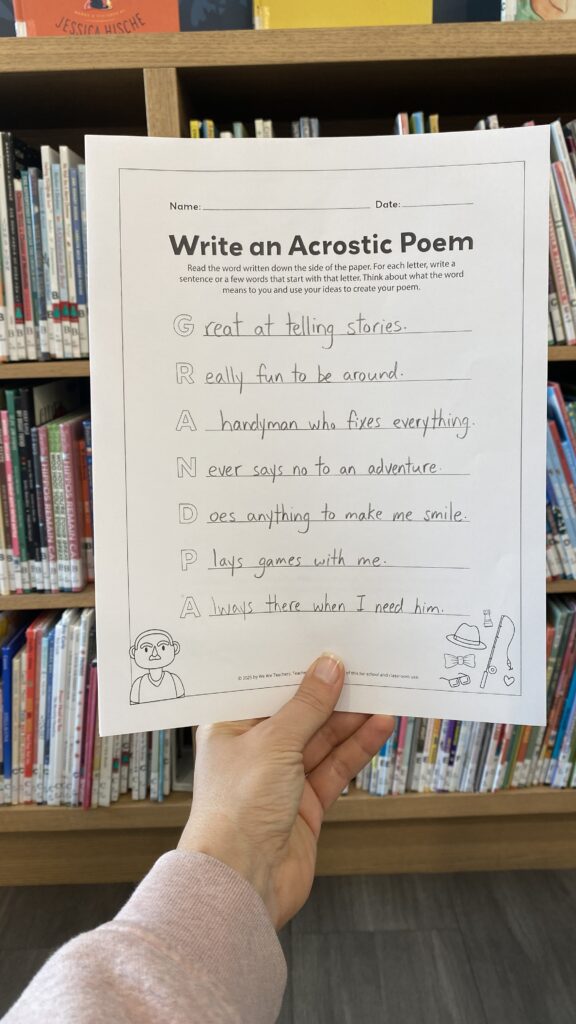 JESSICA HISCHE
Name: Date:
Write an Acrostic Poem
Read the word written down the side of the paper. For each letter, write a
sentence or a few words that start with that letter. Think about what the word
means to you and use your ideas to create your poem.
Great at telling stories.
Really fun to be around.
A handyman who fixes everything.
Never says no to an adventure.
Does anything to make me smile.
Plays games with me.
Always there when I need him.
© 2025 by We Are Teachers. of this for school and classroom use.